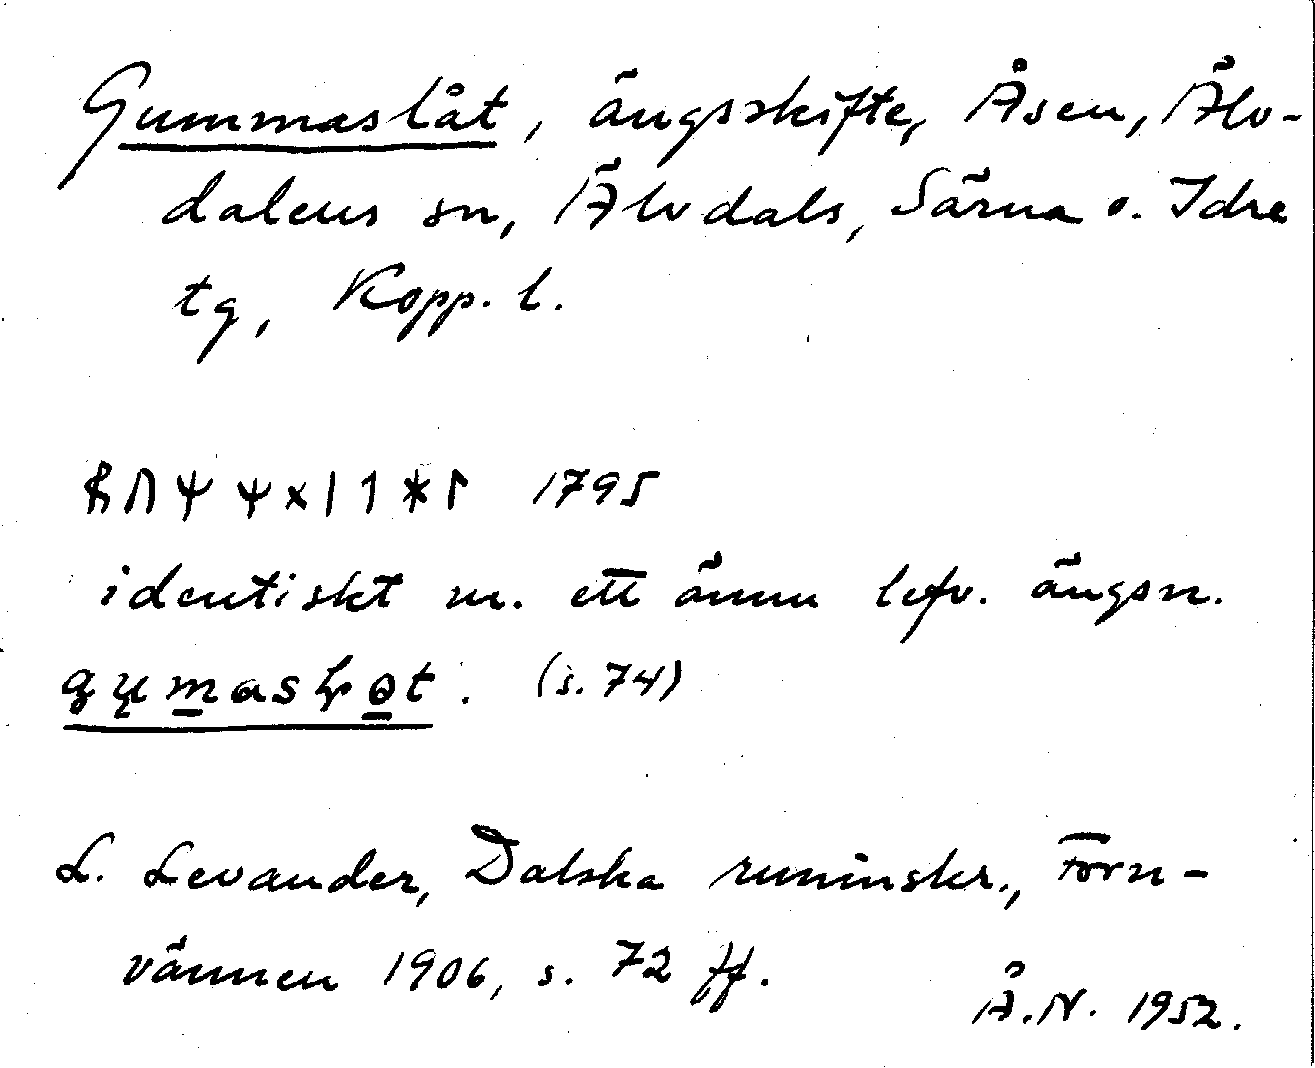 Gummaslåt, ängsskifte, Åsen, Älv-
dalens sn, Älvdals, Särna o. Idre
tg, Kopp. l.
ᚱᚢᛘᛘ×ᛁᛐᛡᛚ 1795
identiskt m. ett ännu lefv. ängsn.
(s. 74)
L. Levander, Dalska runinskr., Forn-
vännen 1906, s. 72 ff.
Å.N. 1952.